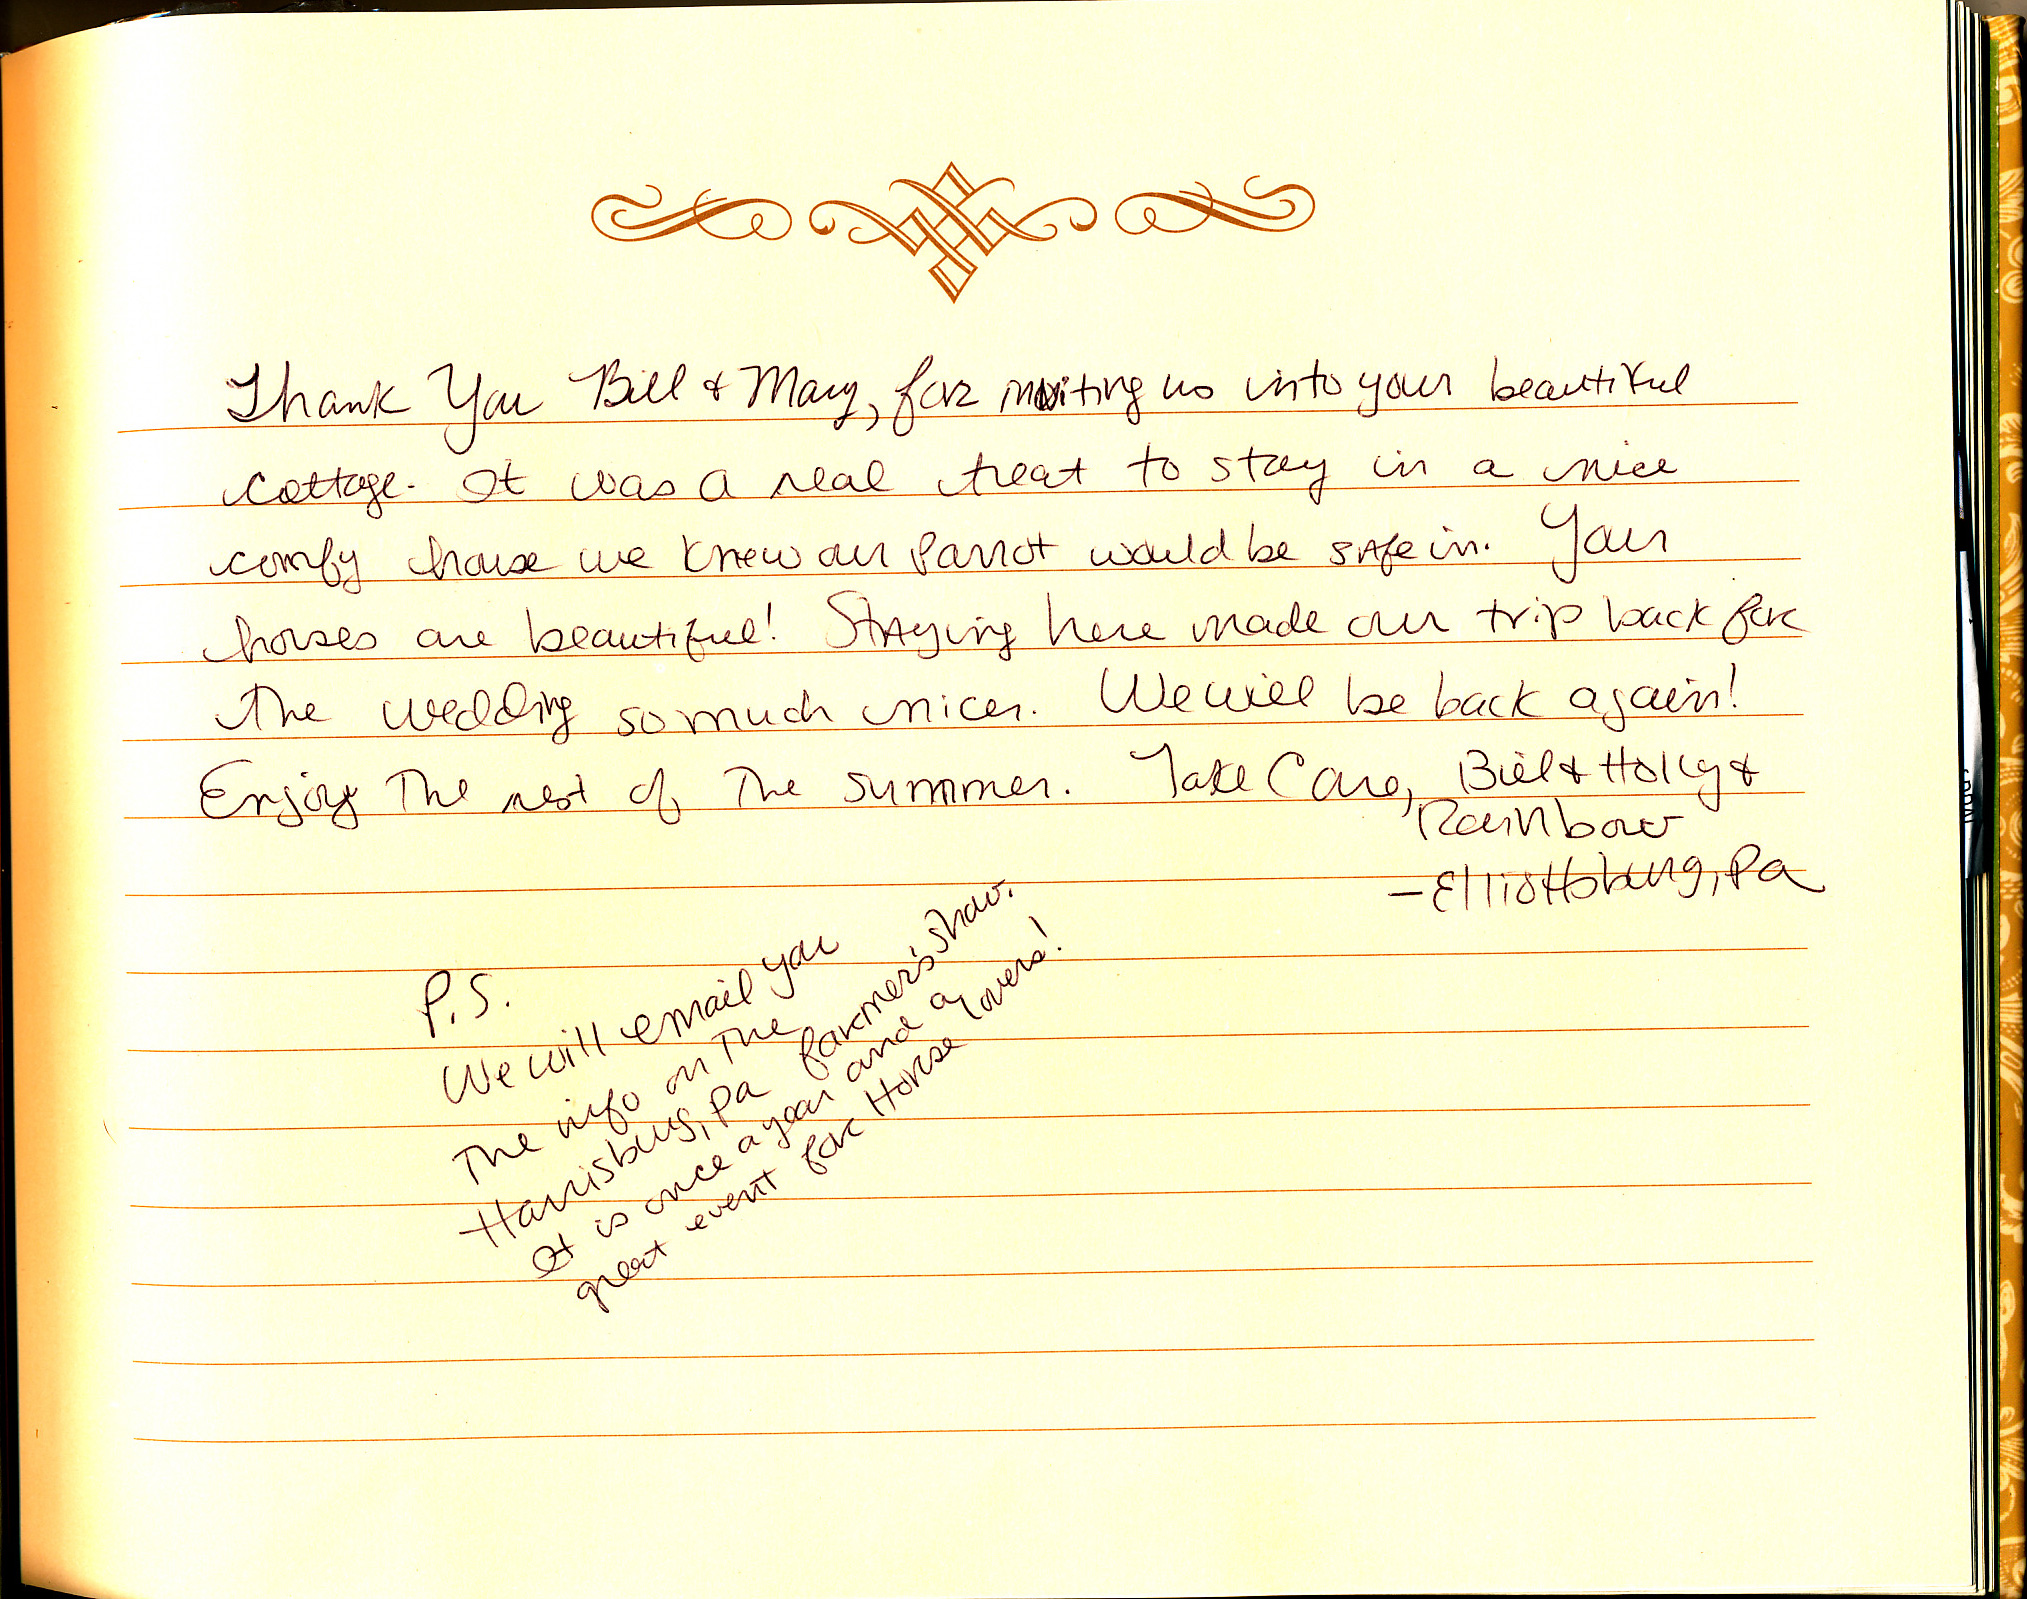 Thank You Bill & Mary, for inviting us into your beautiful
cottage. It was a real treat to stay in a nice
comfy house we knew our parrot would be safe in. Your
horses are beautiful! Staying here made our trip back for
the wedding so much nicer. We will be back again!
Enjoy The rest of The summer. Take Care, Bill & Holly &
Rainbow
- Elliottsburg, Pa
P.S.
We will email you
The info on The
Harrisburg, Pa farmer's show.
It is once a year and a
great event for Horse lovers!